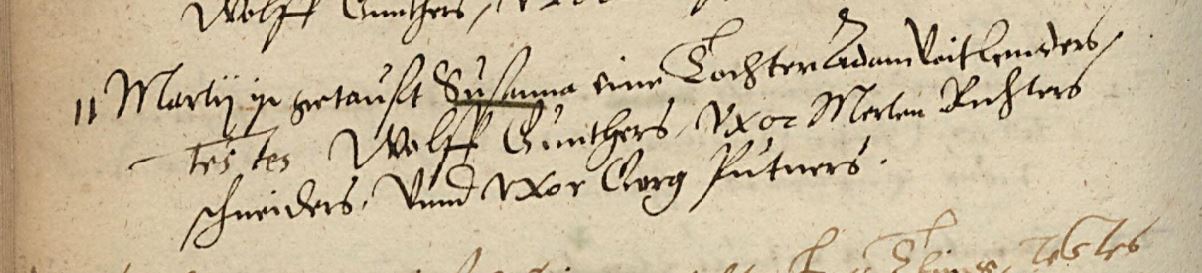 Wolff Gunthers,
11 Martij ist getaufft Susanna eine Tochter Adam Veit
testes Wolff Gunthers, Vxor Merten Richters
schneiders, Vnnd vxor Georg Putners.
Testes